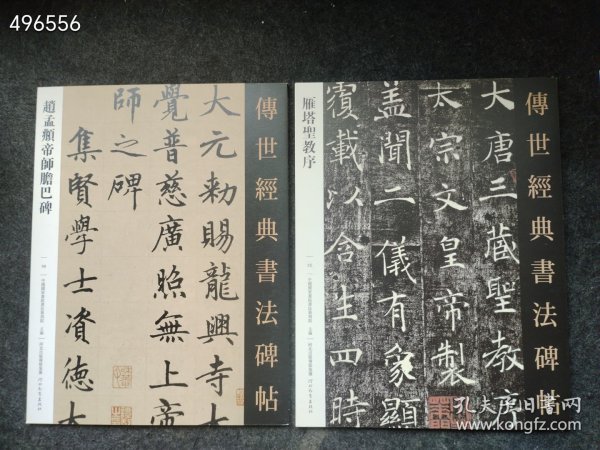 496556
趙孟頫帝師膽巴碑
大元勅賜龍興寺大
覺普慈廣照無上帝
師之碑
集賢學士資德大
傳世經典書法碑帖
雁塔聖教序
大唐三藏聖教序
太宗文皇帝製
盖聞二儀有象顯
覆載以含生四時
傳世經典書法碑帖
孔夫子旧书网
www.kongfz.com